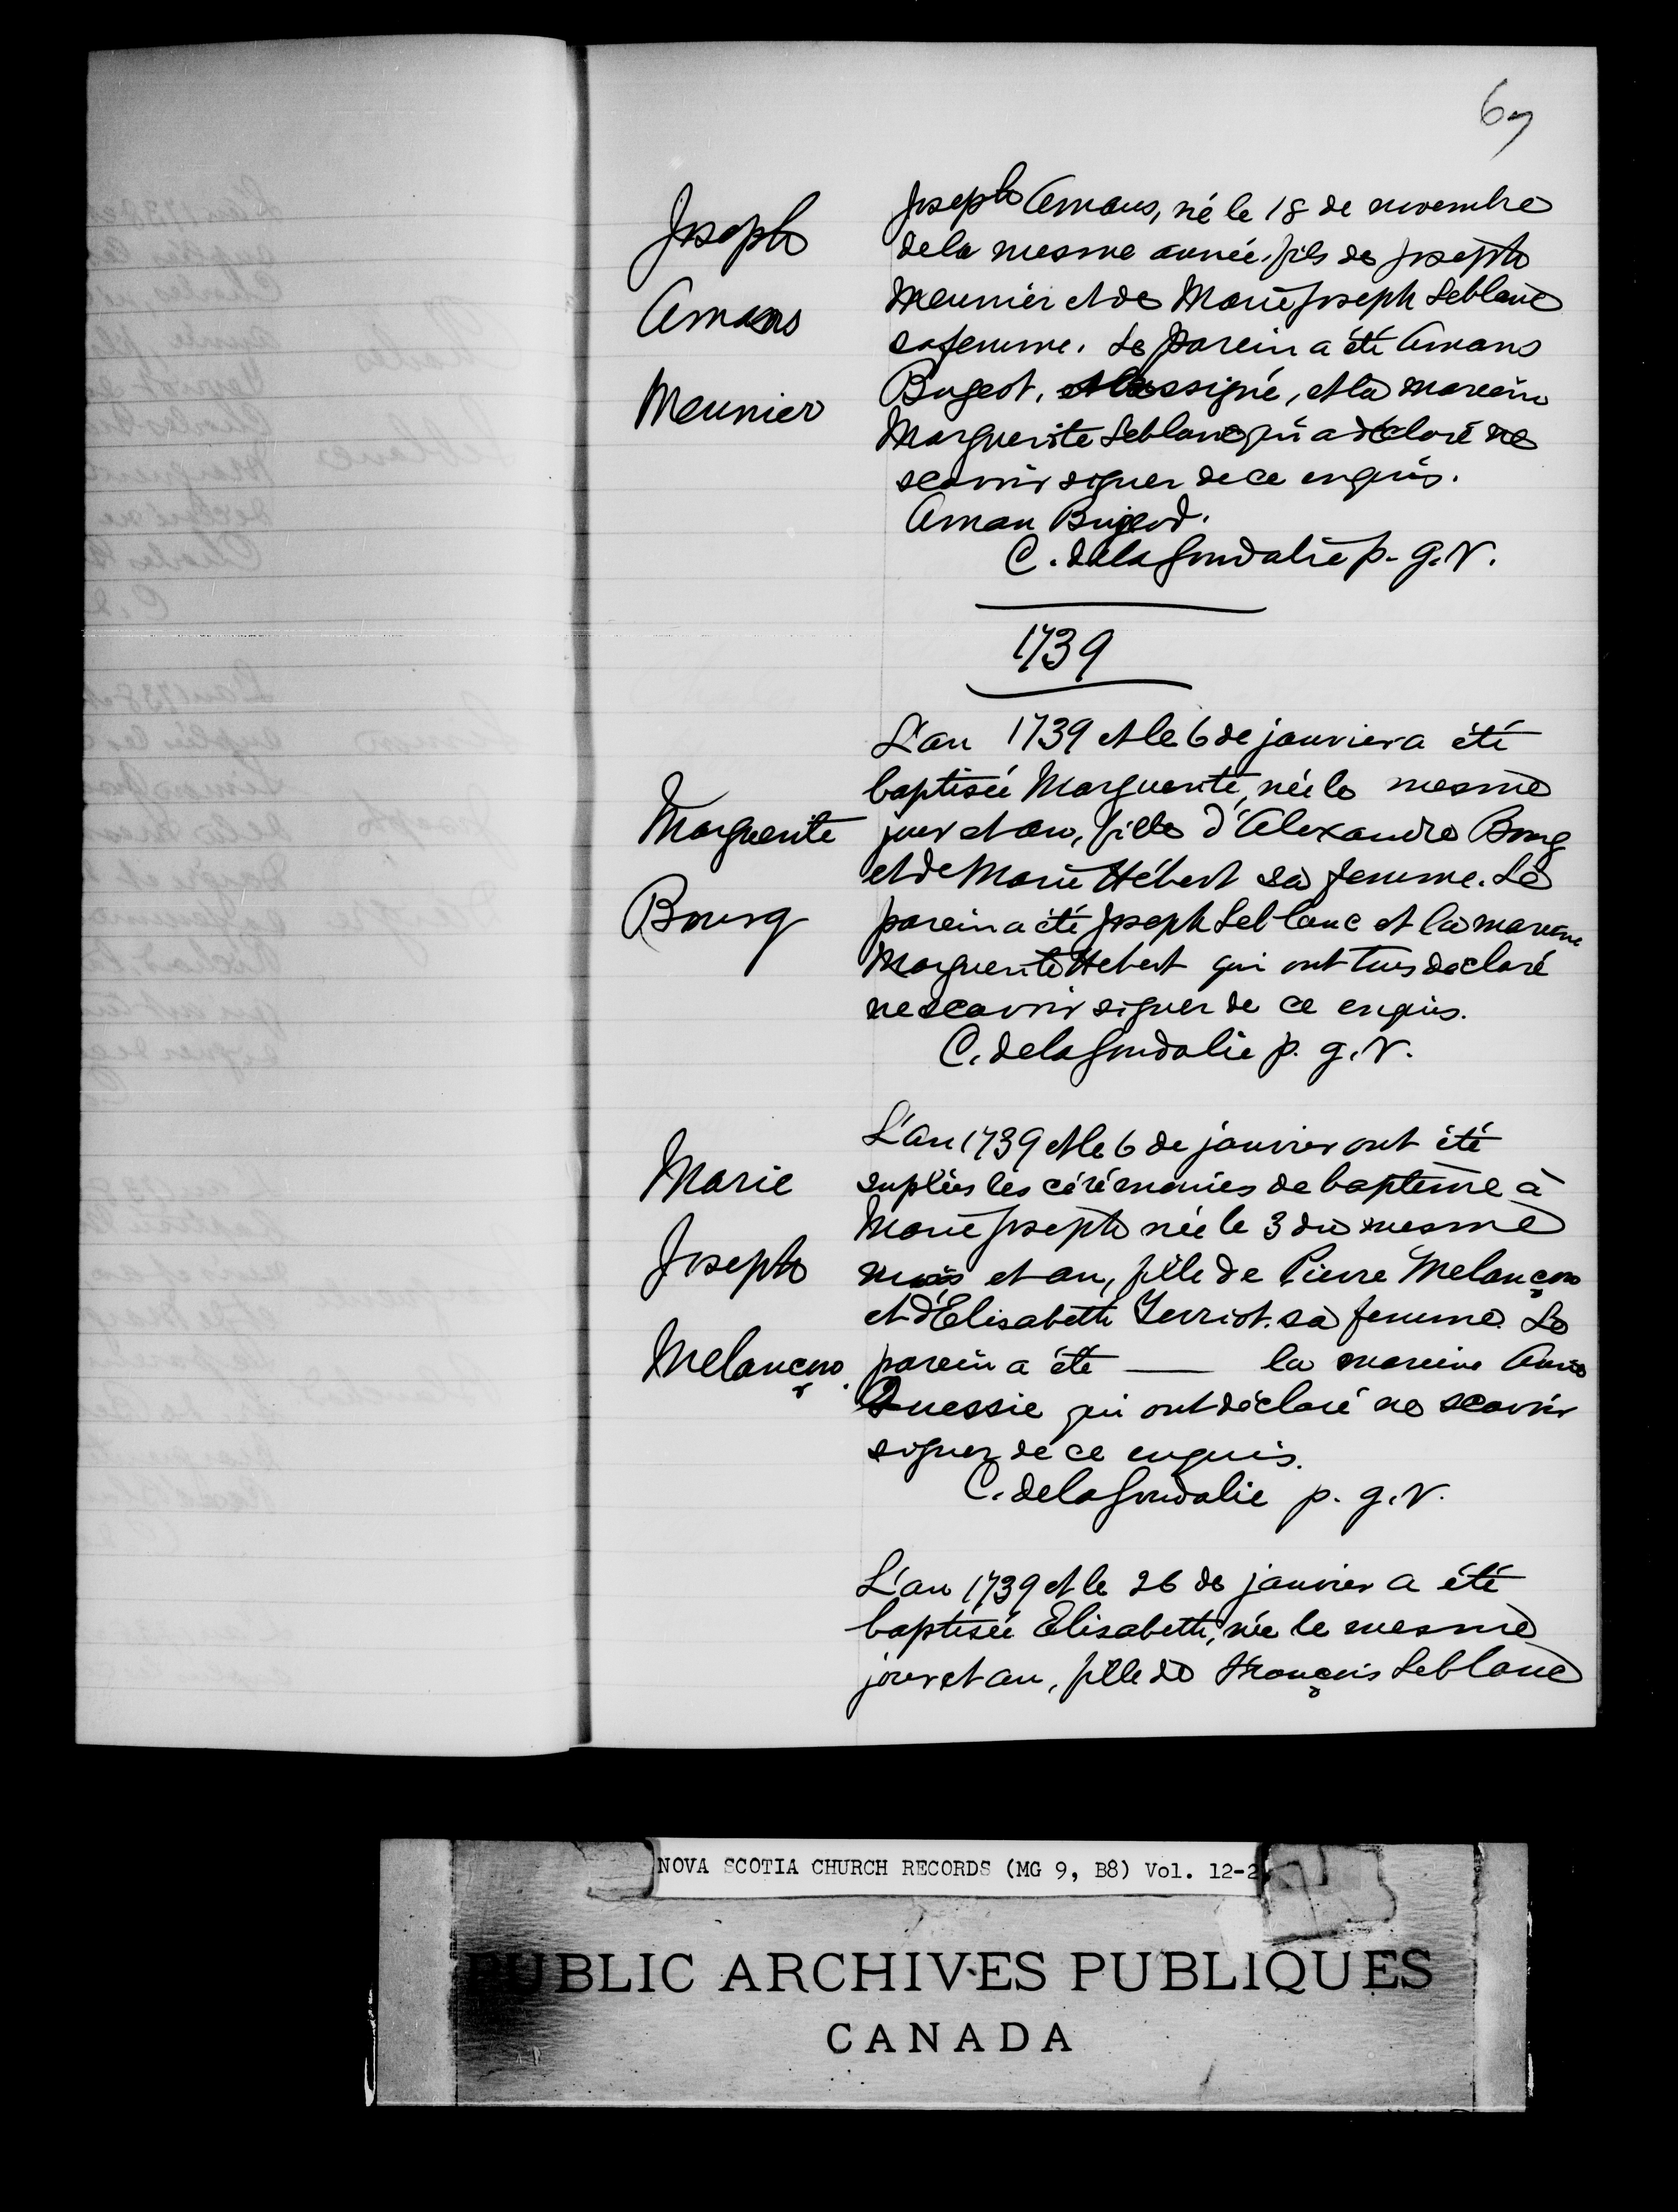 67
Joseph
Amans
Meunier
Joseph Amans, né le 18 de novembre
dela mesme année, fils de Joseph
Meunier et de Marie Joseph Leblanc
sa femme. Le parein a été Amans
Bugeot, signé, et la mareine
Marguerite Leblanc qui a déclaré ne
scavoir signer de ce enquis.
Aman Bugeod.
C. delaGoudalie p. g. V.
1739
Marguerite
Bourg
L'an 1739 et le 6 de janvier a été
baptisée Marguerite, née le mesme
jour et an, fille d'Alexandre Bourg
et de Marie Hébert sa femme. Le
parein a été Joseph Leblanc et la mareine
Marguerite Hebert qui ont tous declaré
ne scavoir signer de ce enquis.
C. delaGoudalie p. g. V.
Marie
Joseph
Melançon.
L'an 1739 et le 6 de janvier ont été
suplées les cérémonies de baptême à
Marie Joseph née le 3 du mesme
mois et an, fille de Pierre Melançon
et d'Elisabeth Terriot sa femme. Le
parein a été —— la mareine Anne
Quessie qui ont déclaré ne scavoir
signer de ce enquis.
C. delaGoudalie p. g. V.
L'an 1739 et le 26 de janvier a été
baptisée Elisabeth, née le mesme
jour et an, fille de François Leblanc
NOVA SCOTIA CHURCH RECORDS (MG 9, B8) Vol. 12-2
PUBLIC ARCHIVES PUBLIQUES
CANADA